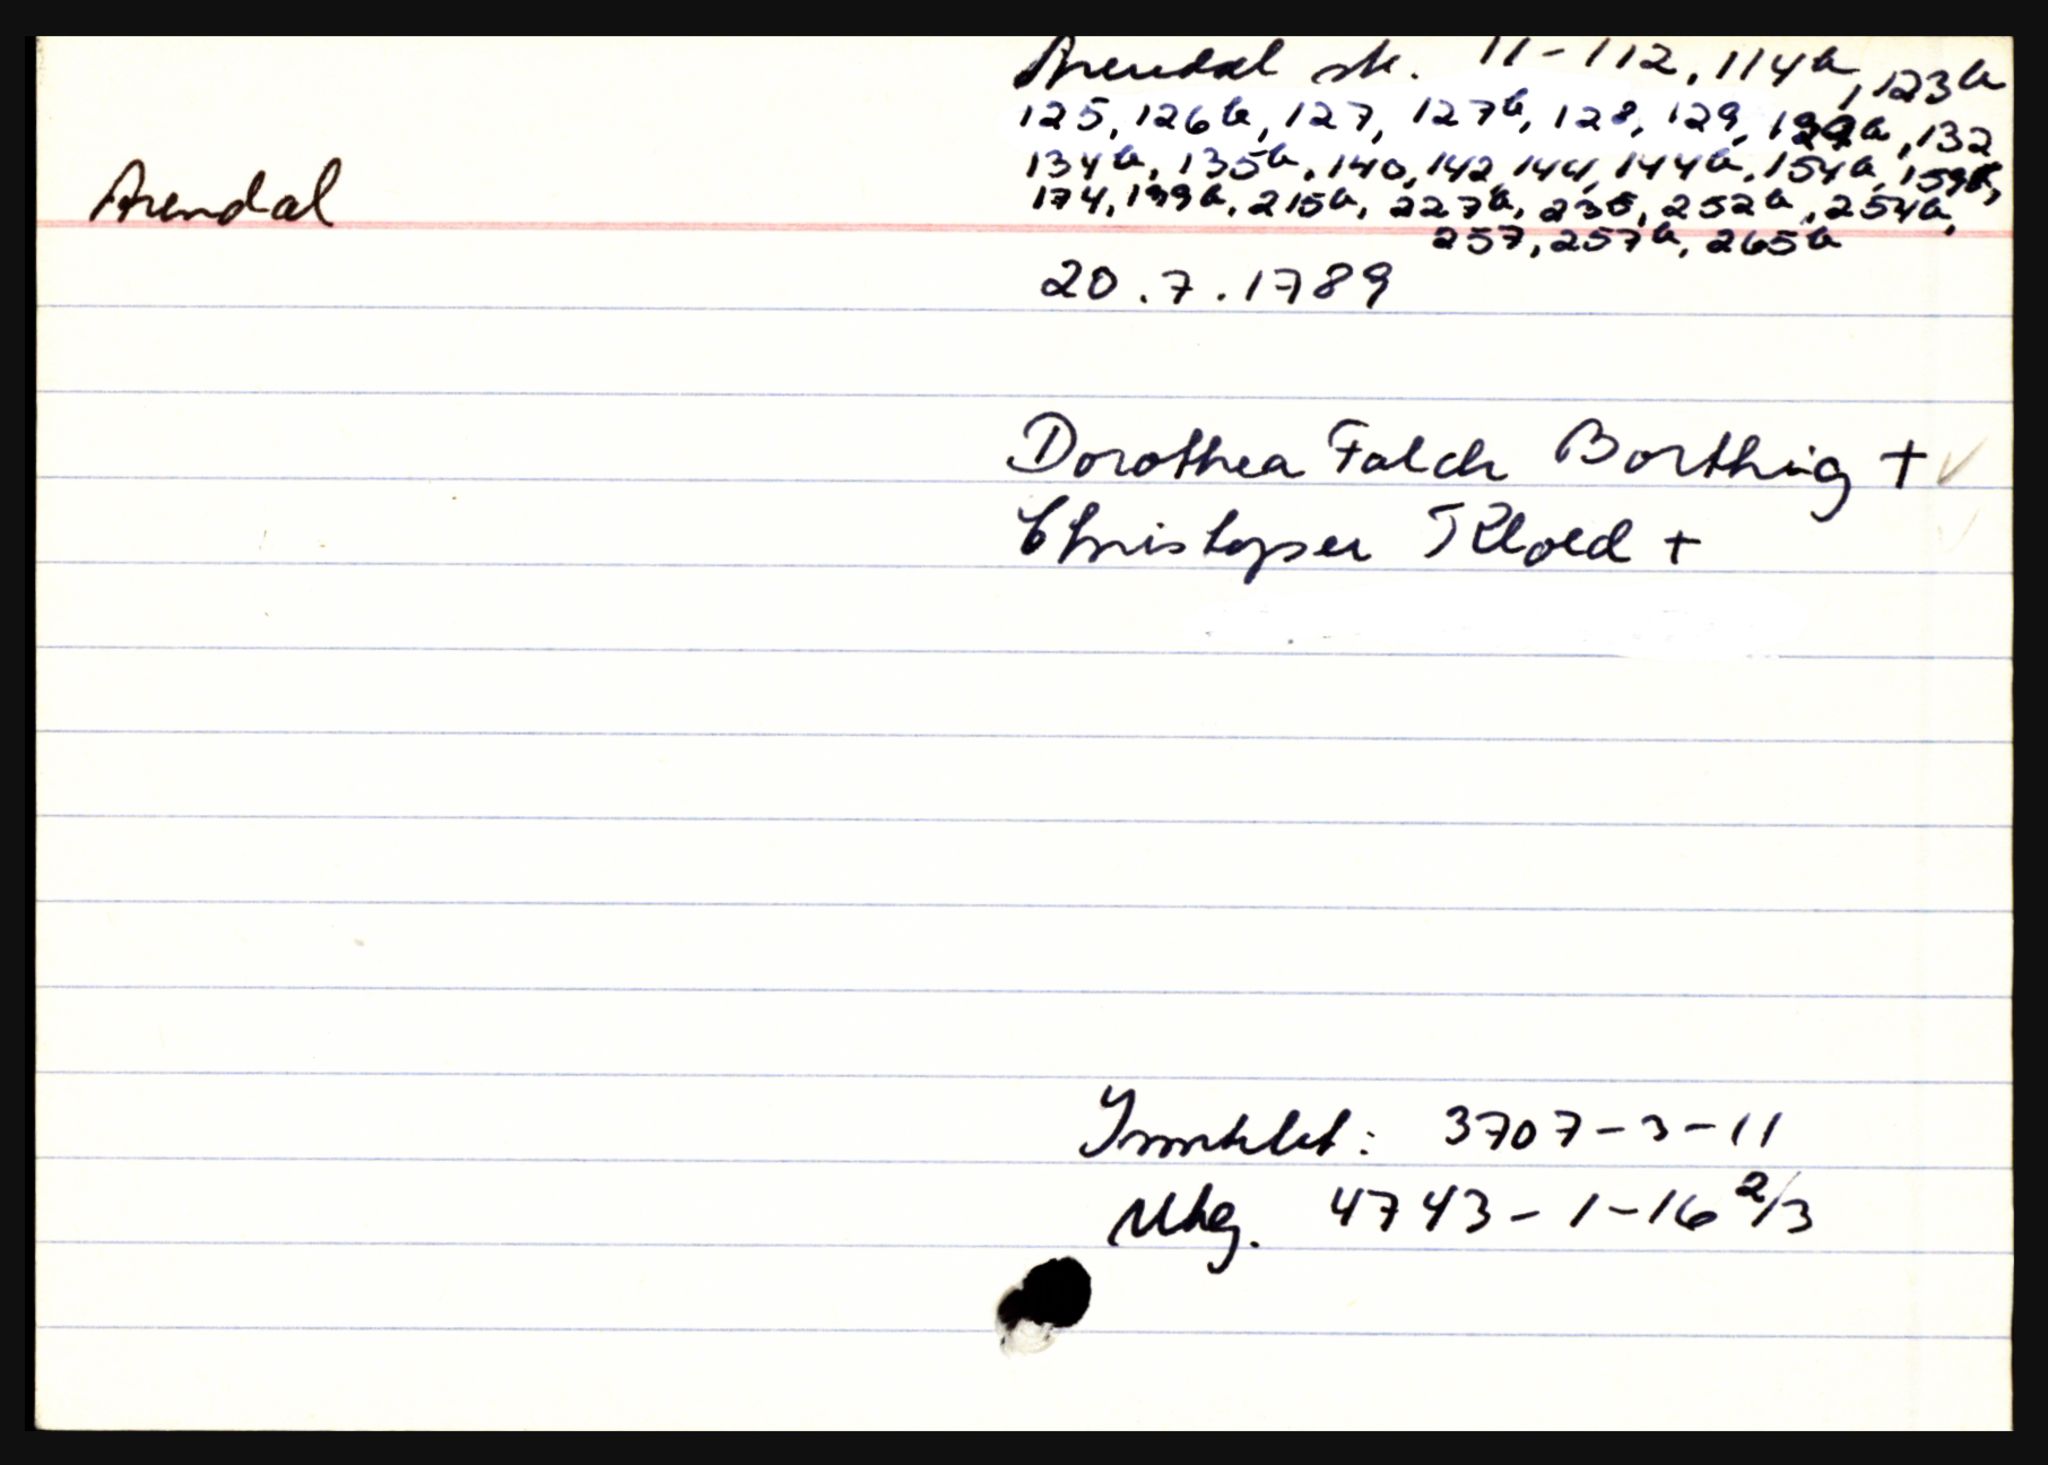 Arendal sk. 11-112, 114b, 123b
125, 126b, 127, 127b, 128, 129, 129b, 132
134b, 135b, 140, 142, 144, 144b, 154b, 159b,
Arendal
174, 199b, 215b, 227b, 235, 252b, 254b,
257, 257b, 265b
20.7.1789
Dorothea Falch Borthig +
Christopser Kloed +
3707-3-11
4743-1-16 2/3